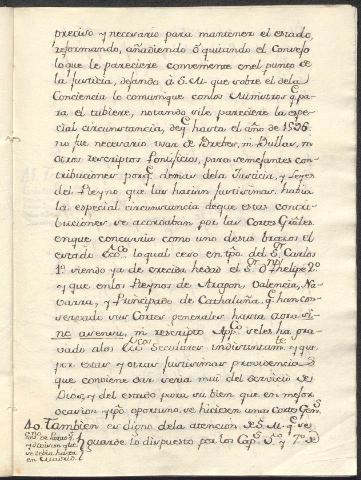 preciso y necesario para mantener el estado,
reformando, añadiendo ó quitando el Consejo
lo que le pareciere conveniente en el punto de
la Justicia, dejando á S. M. que sobre el de la
Conciencia lo comunique con los Ministros q.e pa-
ra el tubiere, notando si le pareciere la espe-
cial circunstancia, de q.e hasta el año de 1526.
no fue necesario usar de Breber, ni Bullas, ni
otros rescriptos Pontificios, para semejantes con-
tribuciones por q.e demas de la Justicia, y Leyes
del Reyno que las hacian justisimas, habia
la especial circunstancia de que estas contri-
buciones se acordaban por las Cortes Gũales.
en que concurria como uno de sus brazos el
estado Ecc.co lo qual ceso en tpõ. del S.or Carlos
1.o viendo ya de crecida hedad el S.or D.n Phelipe 2.o
y que en los Reynos de Aragon, Valencia, Na-
varra, y Principado de Cathaluña, q.e han con-
servado sus Cortes generales, hasta agora si-
ne asensu, ni rescripto App.co seles ha gra-
vado a los Ecc.cos Seculares indistintam.te y que
por estas y otras justisimas providencias
que conviene dar seria mui del servicio de
Dios, y del estado para su bien que en mejor
ocasion y tpõ. oportuno, se hiciesen unas Cortes Gen.s
40. Tambien es digno de la atencion de S. M. q.e se
guarde lo dispuesto por los Cap.s 5.o y 7.o de
en Madrid.